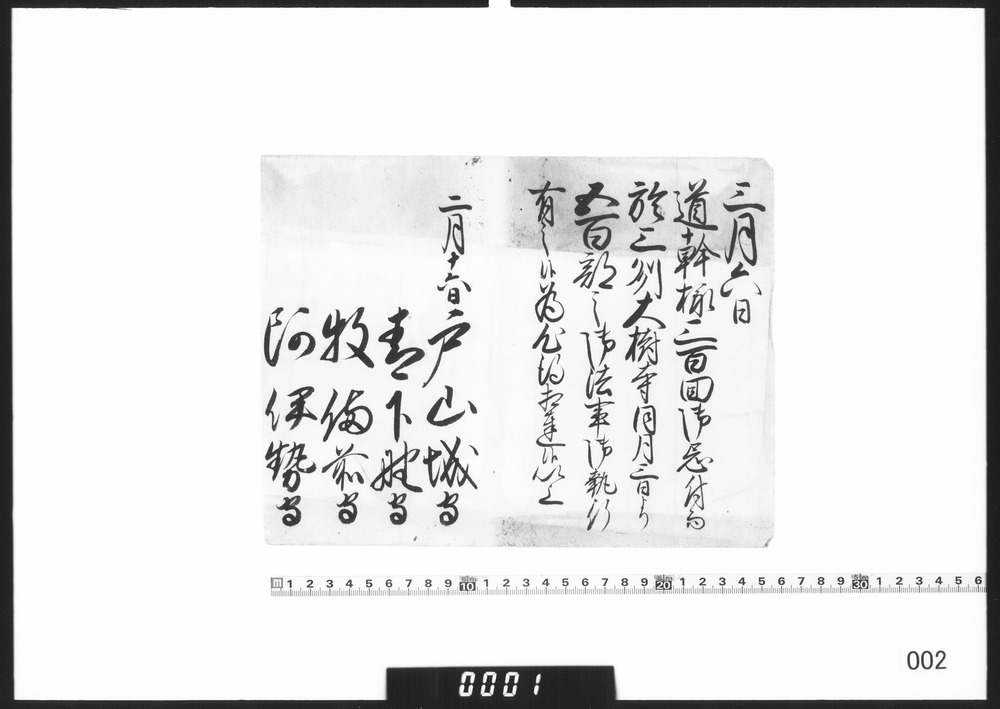 三月六日
道幹様三百回御忌付而
於三州大樹寺同月三日より
五百部之御法事御執行
有之候為心得相達候以上
二月十六日 戸山城守
青下野守
牧備前守
阿伊勢守
m 1 2 3 4 5 6 7 8 9 10 1 2 3 4 5 6 7 8 9 20 1 2 3 4 5 6 7 8 9 30 1 2 3 4 5 6
002
0001